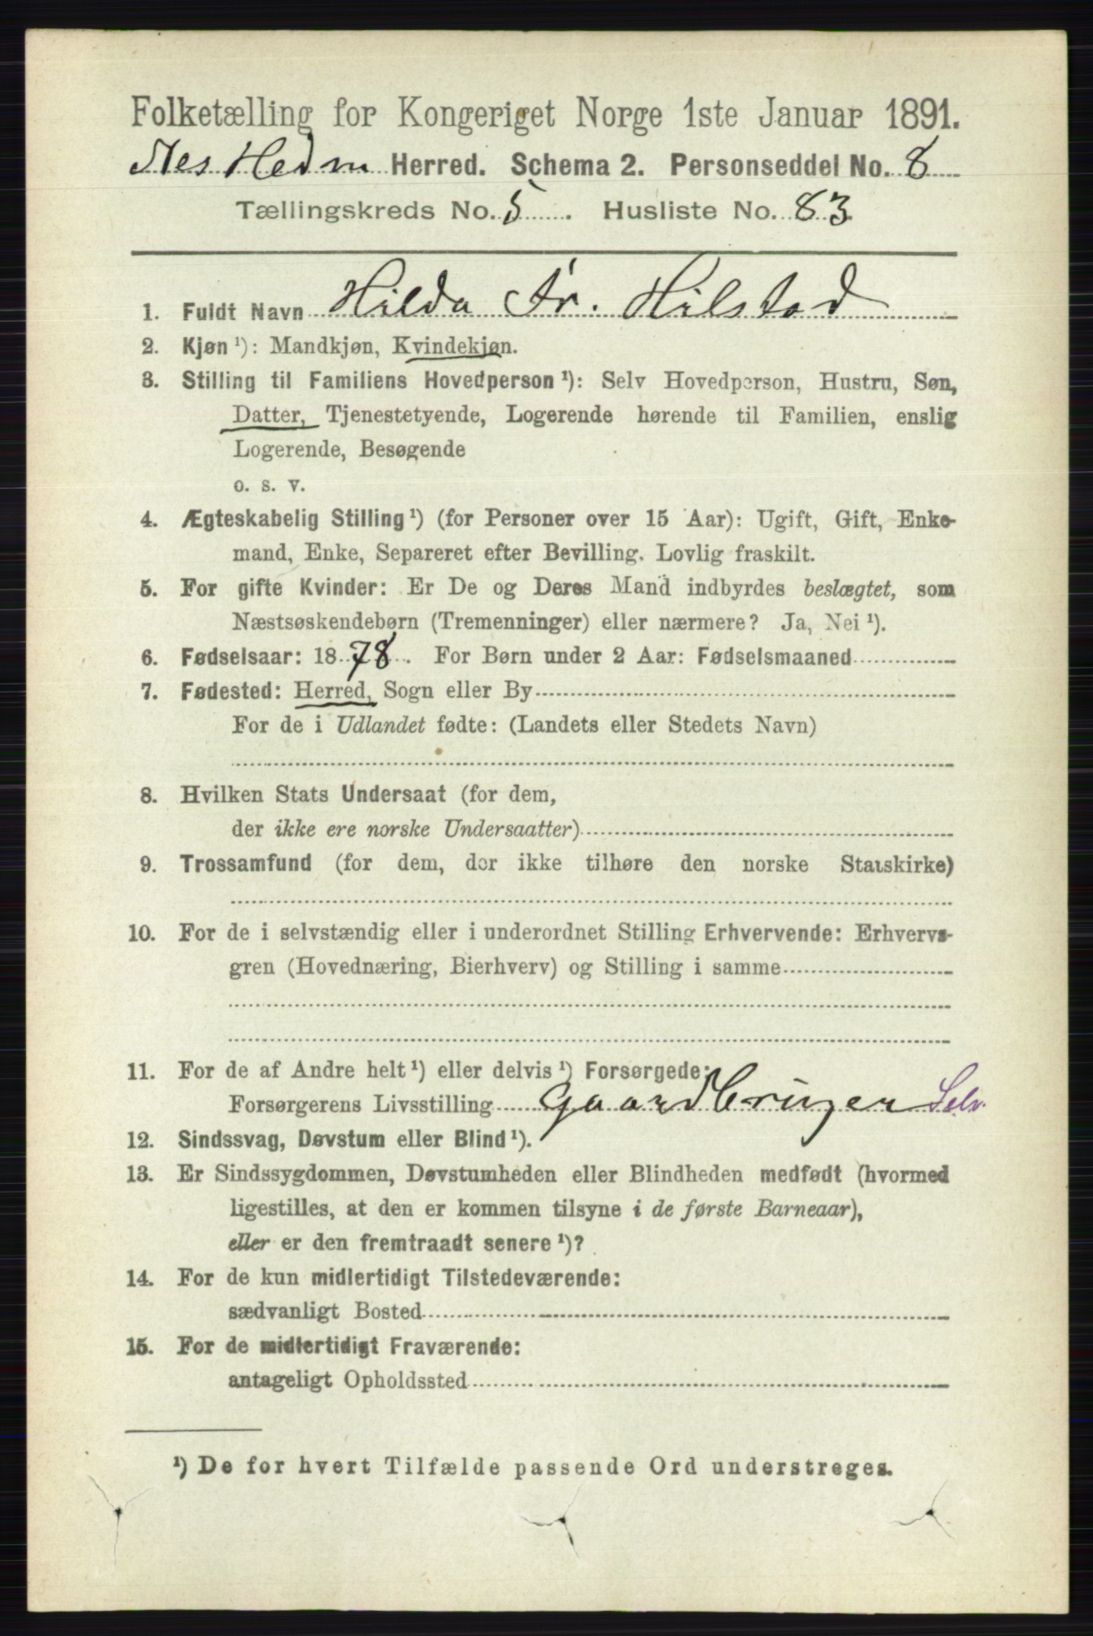 Folketælling for Kongeriget Norge 1ste Januar 1891.
Nes Hedm Herred. Schema 2. Personseddel No. 8
Tællingskreds No. 5. Husliste No. 83
1. Fuldt Navn Hilda Fr. Hilstad
2. Kjøn ¹): Mandkjøn, Kvindekjøn.
3. Stilling til Familiens Hovedperson ¹): Selv Hovedperson, Hustru, Søn,
Datter, Tjenestetyende, Logerende hørende til Familien, enslig
Logerende, Besøgende
o. s. v.
4. Ægteskabelig Stilling ¹) (for Personer over 15 Aar): Ugift, Gift, Enke-
mand, Enke, Separeret efter Bevilling. Lovlig fraskilt.
5. For gifte Kvinder: Er De og Deres Mand indbyrdes beslægtet, som
Næstsøskendebørn (Tremenninger) eller nærmere? Ja, Nei ¹).
6. Fødselsaar: 1878. For Børn under 2 Aar: Fødselsmaaned
7. Fødested: Herred, Sogn eller By
For de i Udlandet fødte: (Landets eller Stedets Navn)
8. Hvilken Stats Undersaat (for dem,
der ikke ere norske Undersaatter)
9. Trossamfund (for dem, der ikke tilhøre den norske Statskirke)
10. For de i selvstændig eller i underordnet Stilling Erhvervende: Erhvervs-
gren (Hovednæring, Bierhverv) og Stilling i samme
11. For de af Andre helt ¹) eller delvis ¹) Forsørgede:
Forsørgerens Livsstilling Gaardbruger Selv.
12. Sindssvag, Døvstum eller Blind ¹).
13. Er Sindssygdommen, Døvstumheden eller Blindheden medfødt (hvormed
ligestilles, at den er kommen tilsyne i de første Barneaar),
eller er den fremtraadt senere ¹)?
14. For de kun midlertidigt Tilstedeværende:
sædvanligt Bosted
15. For de midlertidigt Fraværende:
antageligt Opholdssted
¹) De for hvert Tilfælde passende Ord understreges.